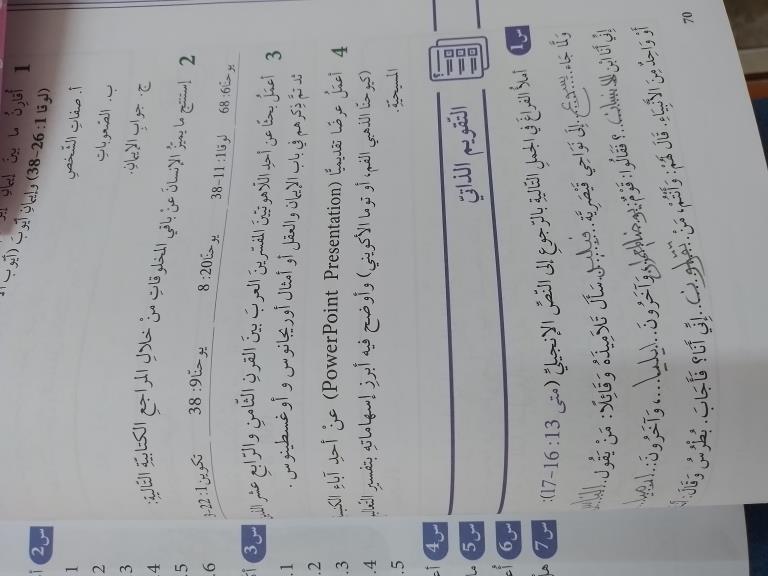 1 أُقارِنُ ما بينَ إيمانِ
(لوقا 1: 26-38) وإيمانِ أيّوبَ (أيّوب
أ. صفات الشّخصِ
ب. الصّعوباتِ
ج. جوابِ الإيمانِ.
2 أستنتج ما يميّزُ الإنسانَ عنْ باقي المخلوقاتِ منْ خلالِ المراجعِ الكتابيّةِ التّاليةِ:
تكوين 1: 22- يوحنّا 9: 38 يوحنّا 20: 8 لوقا 1: 11-38 يوحنّا 6: 68
3 أعملُ بحثًا عن أحدِ اللّاهوتيّينَ المفسّرينَ العربَ بينَ القرنِ الثّامنِ والرّابعِ عشرَ
تمّ ذكرهم في بابِ الإيمانِ والعقلِ أو أمثال أوريجانوس و أوغسطينوس.
4 أعملُ عرضًا تقديميًّا (PowerPoint Presentation) عنْ أحدِ آباءِ
(كيوحنّا الذّهبيّ الفم، أو توما الأكوينيّ) وأوضح فيه أبرزَ إسهاماتهِ بتفسيرِ
المسيحيّةِ.
التّقويم الذّاتيّ
س1 أملأُ الفراغَ في الجملِ التّاليةِ بالرّجوعِ إلى النّصِّ الإنجيليِّ (متى 16: 13-17):
وَلَمَّا جَاءَ يسوع إِلَى نَوَاحِي قَيْصَرِيَّةَ فيلبس سَأَلَ تَلَامِيذَهُ وَقَائِلًا: مَنْ يَقُولُ الناس
إِنِّي أَنَا ابْنُ الانسان؟ فَقَالُوا: قَوْمٌ: يوحنا المعمدان وَآخَرُونَ: إيليا، وَآخَرُونَ: إرميا
أَوْ وَاحِدٌ مِنَ الْأَنْبِيَاءِ. قَالَ لَهُمْ: وَأَنْتُمْ، مَنْ تقولون إِنِّي أَنَا؟ فَأَجَابَ. بُطْرُسُ وَقَالَ:
70
س2
1
2
3.
4.
5.
6.
س3
1.
2.
3.
4.
5.
س4
س5 ما
س6
س7 هل